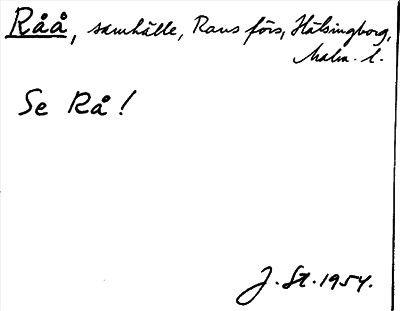 Råå, samhälle, Raus förs, Hälsingborg,
Malm. l.
Se Rå!
J. St. 1954.